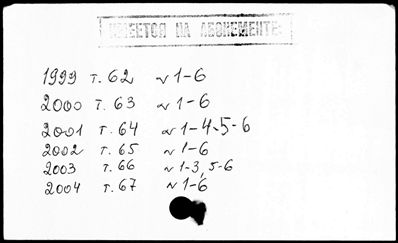 ИМЕЕТСЯ НА АБОНЕМЕНТЕ
1999 т. 62 № 1-6
2000 т. 63 № 1-6
2001 т. 64 № 1-4, 5-6
2002 т. 65 № 1-6
2003 т. 66 № 1-3, 5-6
2004 т. 67 № 1-6